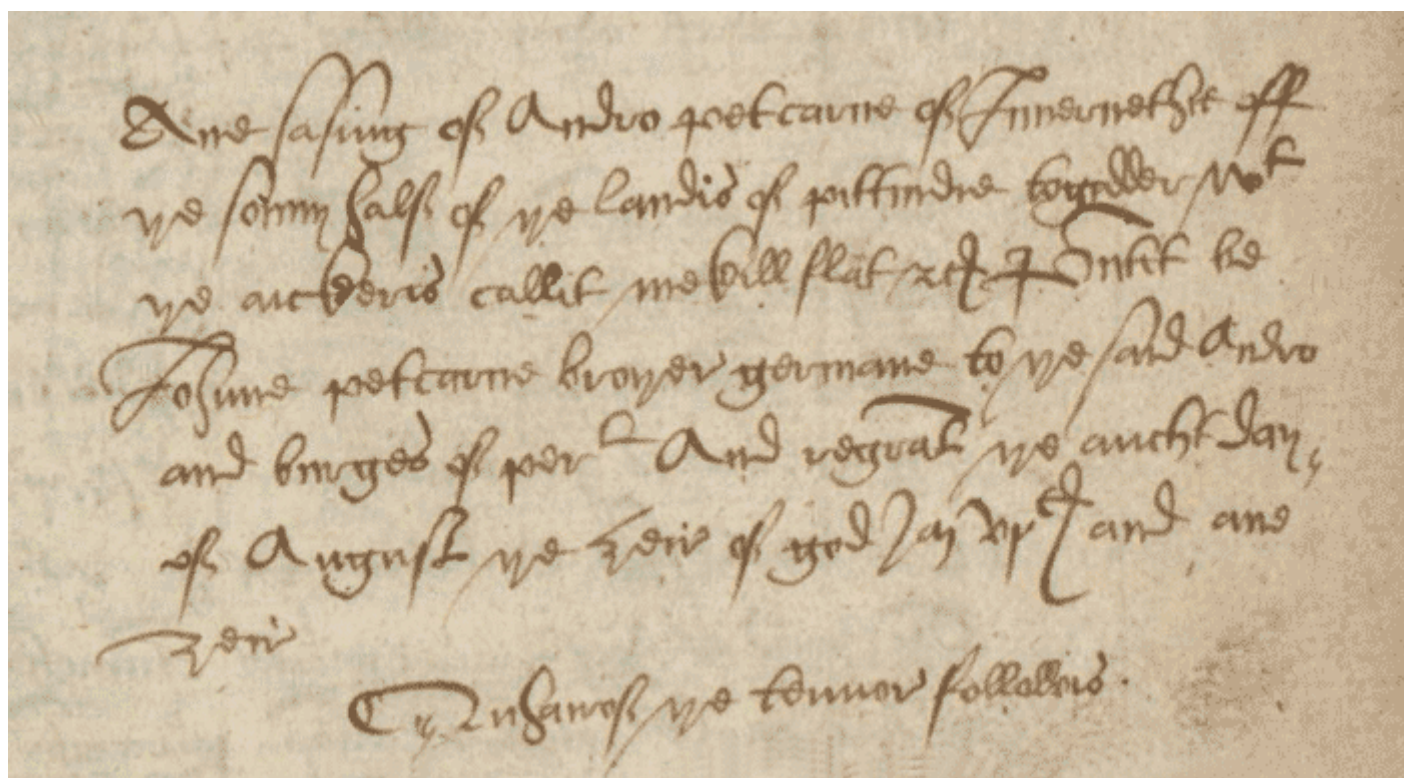 Ane sasing of Andro petcarne of Innernethie off
ye sonny half of ye landis of pittindie togidder wt
ye aickeris callit mekill flat etc pntit be
Johnne petcarne broyer germane to ye said Andro
and burges of pert And regrat ye aucht day
of August ye zeir of god Jaj vjc and ane
zeir
Quhairof ye tennor followis